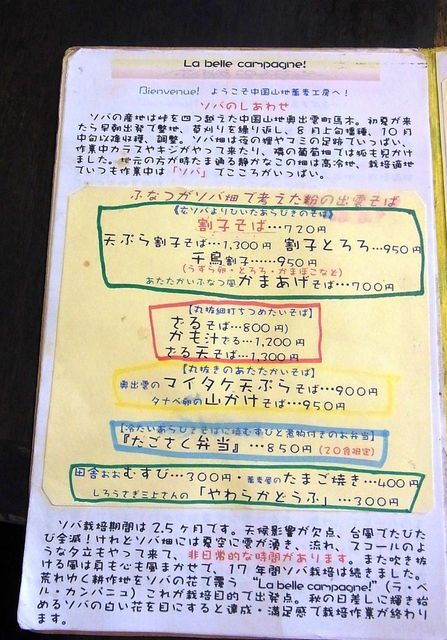 La belle campagne!
Bienvenue! ようこそ中国山地蕎麦工房へ!
ソバのしあわせ
ソバの産地は峠を四つ越えた中国山地奥出雲町馬木。初夏が来
たら早朝出発で整地、草刈りを繰り返し、8月上旬播種、10月
中旬以降収穫、調整。ソバ畑は夜の狸やマミの足跡でいっぱい、
作業中カラスやキジがやって来たり、隣の葡萄畑では姫も見かけ
ました。地元の方が時たま通る静かなこの畑は高冷地、栽培適地
でいつも作業中は「ソバ」でこころがいっぱい。
ふなつがソバ畑で考えた粉の出雲そば
《玄ソバよりひいたあらびきのそば》
割子そば…720円
天ぷら割子そば…1,300円 割子とろろ…950円
千鳥割子……950円
(うずら卵・とろろ・かまぼこなど)
あたたかいふなつ風かまあげそば…700円
【丸抜細打ちつめたいそば】
ざるそば…800円)
かも汁ざる…1,200円
ざる天そば…1,300円
【丸抜きのあたたかいそば】
奥出雲のマイタケ天ぷらそば…900円
タナベ卵の山かけそば…950円
【冷たいあらびきそばに塩むすびと煮物付きのお弁当】
『たごさく弁当』…850円(20食限定)
田舎おおむすび…300円・蕎麦屋のたまご焼き…400円
しろうさぎ三上さんの「やわらかどうふ」…300円
ソバ栽培期間は2.5ケ月です。天候影響が欠点、台風でたびた
び全滅!けれどソバ畑には夏空に雲が湧き、流れ、スコールのよ
うな夕立もやって来て、非日常的な時間があります。また吹き抜
ける風は身も心も風まかせで、17年間ソバ栽培は続きました。
荒れゆく耕作地をソバの花で覆う “La belle campagne!”(ラ・ベ
ル・カンパニュ)これが栽培目的で出発点。秋の日差しに輝き始
めるソバの白い花を目にすると達成・満足感で栽培作業が終わり
ます。